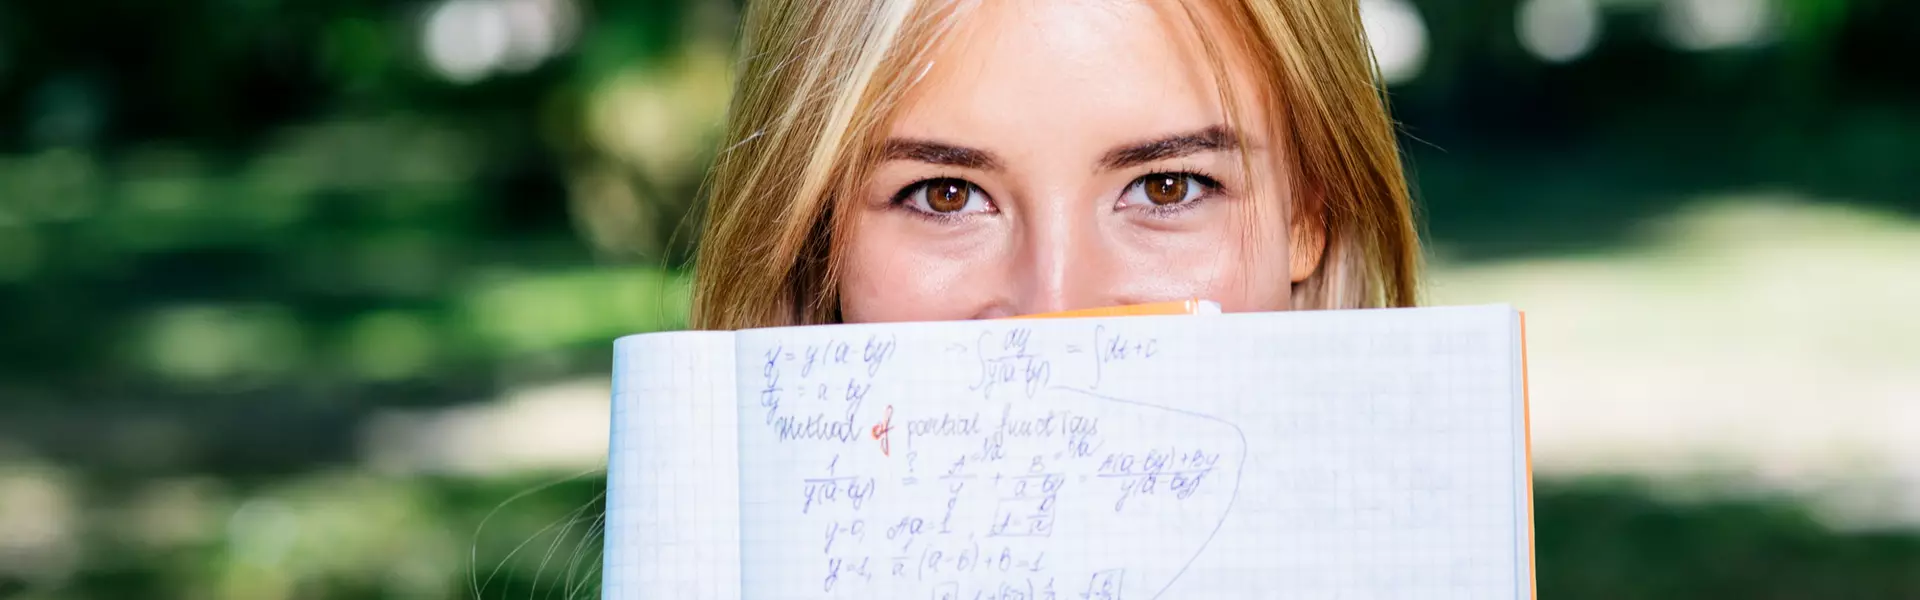 y' = y(a-by) → ∫ dy/y(a-by) = ∫dt+c
y'/y = a-by
Method of partial functions
1/y(a-by) ?= A=1/a/y + B=b/a/a-by = A(a-by)+By/y(a-by)
y=0, Aa=1, A=1/a
y=1, 1/a (a-b)+B=1